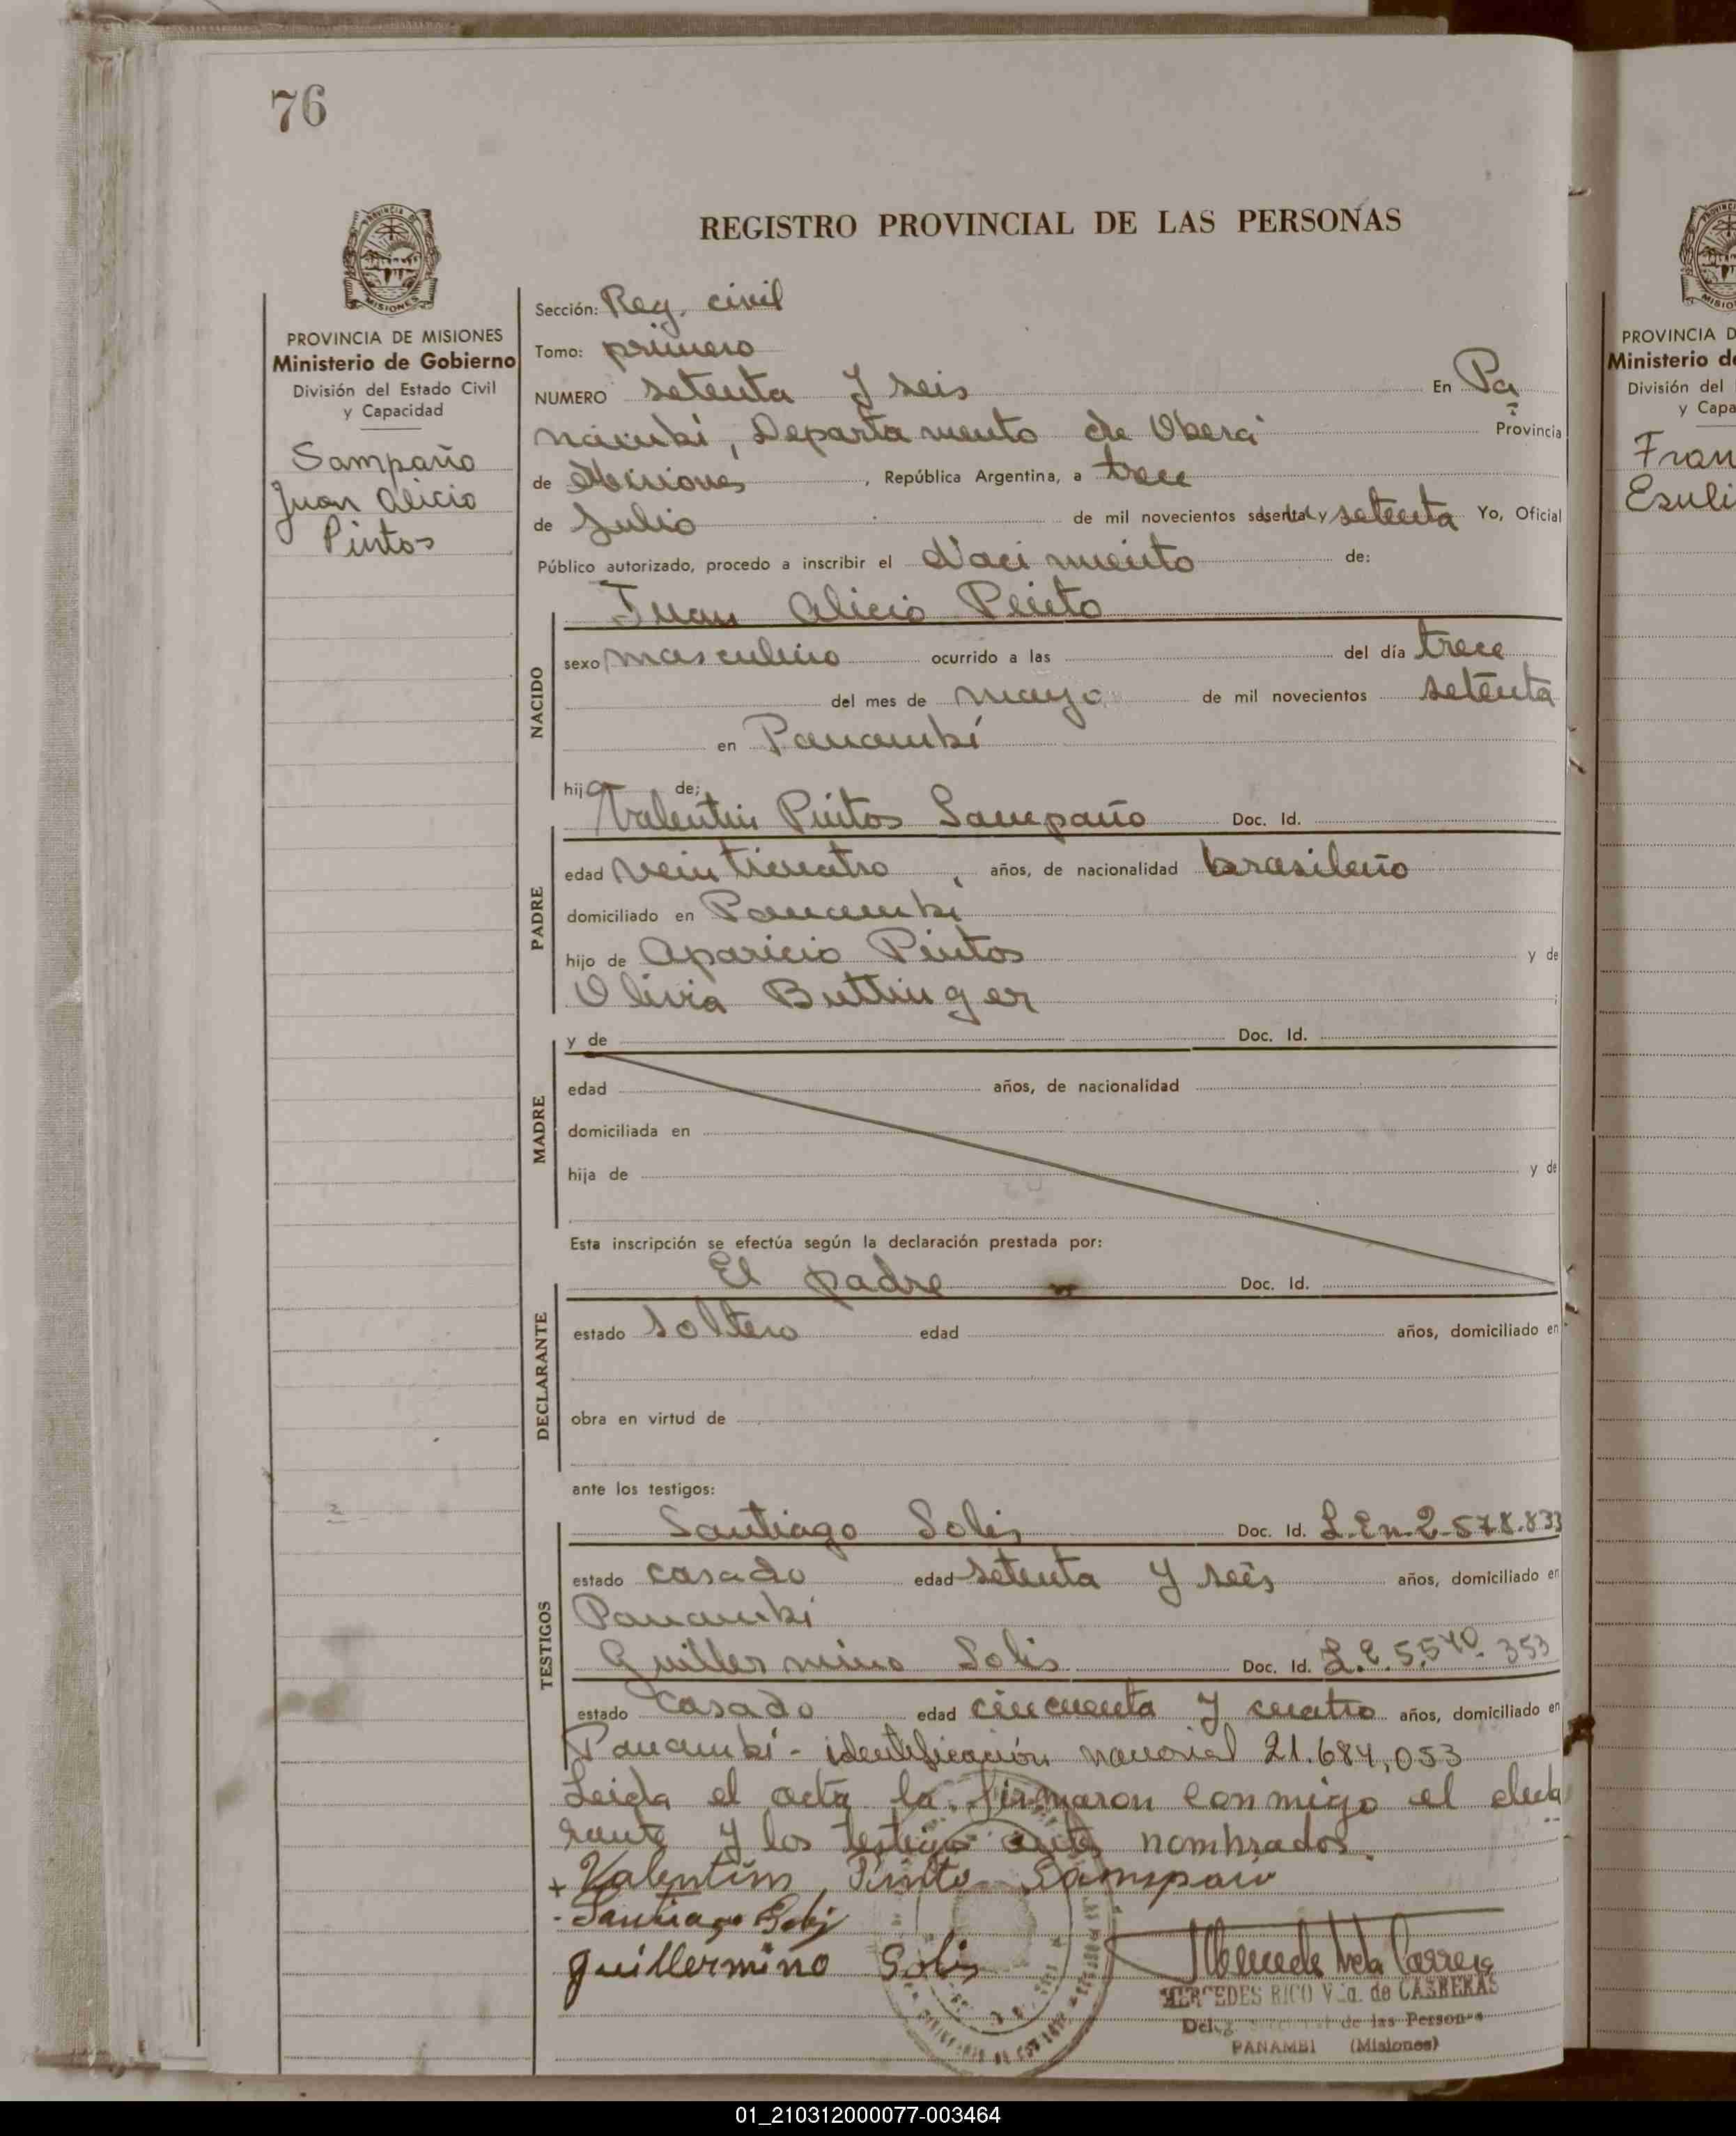 76
REGISTRO PROVINCIAL DE LAS PERSONAS
PROVINCIA DE MISIONES
Ministerio de Gobierno
División del Estado Civil
y Capacidad
Sampaño
Juan Alicio
Pintos
Sección: Reg. civil
Tomo: primero
NUMERO setenta y seis En Pa
nambí, Departamento de Oberá Provincia
de Misiones, República Argentina, a trece
de Julio de mil novecientos sesenta y setenta Yo, Oficial
Público autorizado, procedo a inscribir el Nacimiento de:
Juan Alicio Pinto
NACIDO
sexo masculino ocurrido a las del día trece
del mes de mayo de mil novecientos setenta
en Panambí
hijo de;
Valentin Pintos Sampaño Doc. Id.
PADRE
edad veinticuatro años, de nacionalidad brasileño
domiciliado en Panambí
hijo de Aparicio Pintos y de
Olivia Buttinger ;
MADRE
y de Doc. Id.
edad años, de nacionalidad
domiciliada en
hija de y de
Esta inscripción se efectúa según la declaración prestada por:
El padre Doc. Id.
DECLARANTE
estado soltero edad años, domiciliado en
obra en virtud de
ante los testigos:
TESTIGOS
Santiago Solis Doc. Id. L.En.2.578.833
estado casado edad setenta y seis años, domiciliado en
Panambí
Guillermino Solis Doc. Id. L.E.5.540.353
estado casado edad cincuenta y cuatro años, domiciliado en
Panambí - identificación nacional 21.684.053
Leida el acta la firmaron conmigo el decla
rante y los testigo ante nombrados.
+ Valentim Pinto Sampaio
- Santiago Solis
guillermino Solis
MERCEDES RICO Vda. de CARRERAS
de las Personas
PANAMBI (Misiones)
PROVINCIA D
Ministerio de
División del
y Capa
Fran
Esuli
01_210312000077-003464